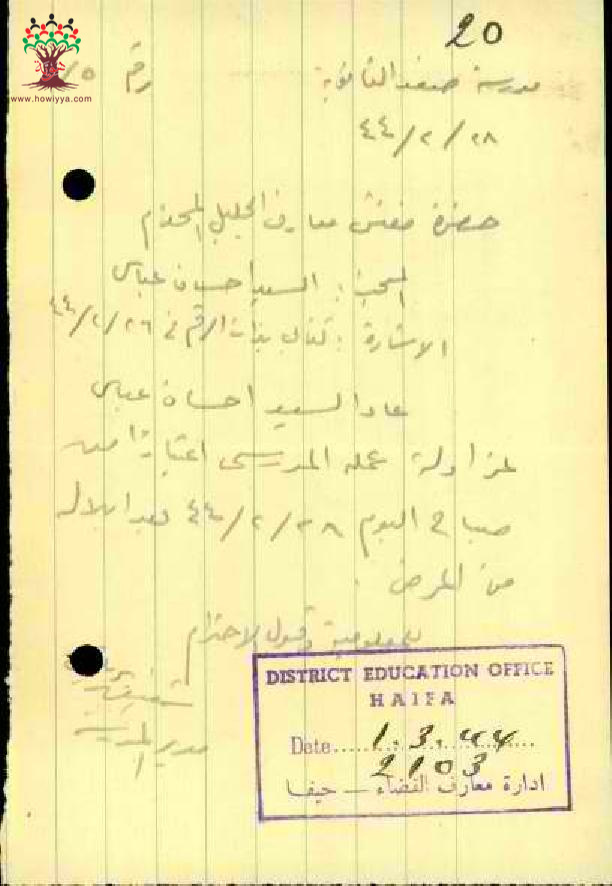 20
www.howiyya.com
مدرسة صفد الثانوية رقم
٤٤/٢/٢٨
حضرة مفتش معارف الجليل المحترم
المبحث : السيد احسان عباس
الاشارة : كتابي بذات الرقم في ٤٤/٢/٢٦
عاد السيد احسان عباس
لمزاولة عمله المدرسي اعتبارًا من
صباح اليوم ٤٤/٢/٢٨ بعد ابلاله
من المرض .
للمعلومية وقبول الاحترام
مدير المدرسة
DISTRICT EDUCATION OFFICE
HAIFA
Date..... 1.3.44
2103
ادارة معارف القضاء – حيفا